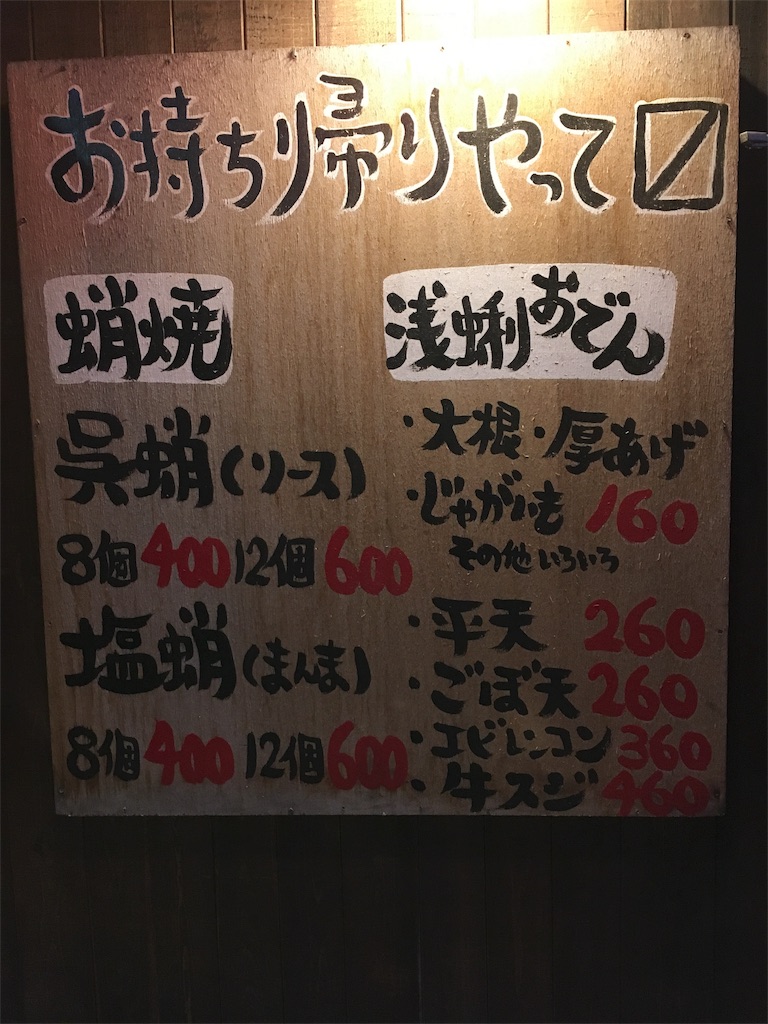 お持ち帰りやって〼
蛸焼
呉蛸(ソース)
8個400 12個600
塩蛸(まんま)
8個400 12個600
浅蜊おでん
・大根・厚あげ
・じゃがいも 160
その他いろいろ
・平天 260
・ごぼ天 260
・エビレンコン 360
・牛スジ 460